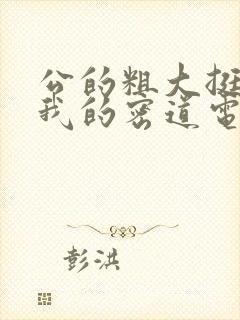 公的粗大挺
我的密道电
彭洪